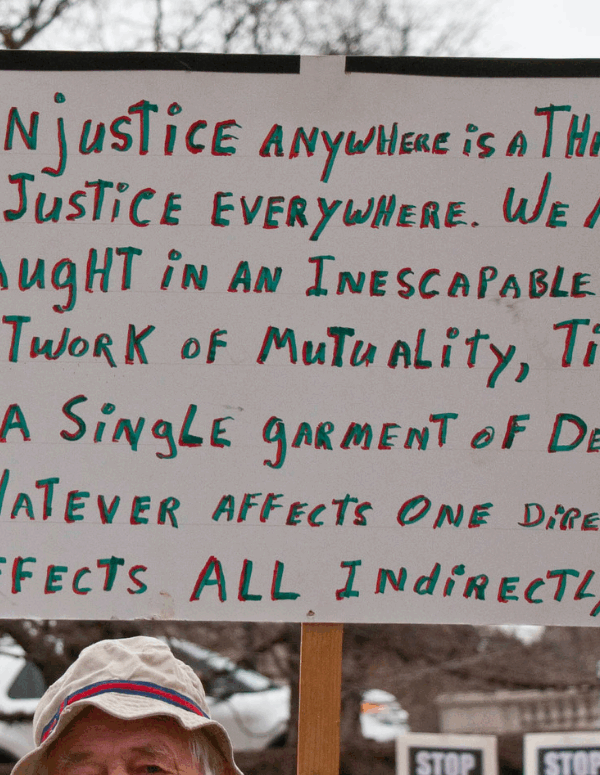 NJUSTiCE ANYWHERE iS A TH
JUSTiCE EVERYWHERE. WE
AUGHT iN AN INESCAPABLE
TWORK OF MUTUALiTy, Ti
A SiNgLE gARMENT OF DE
HATEVER AFFECTS ONE DiRE
FFECTS ALL INdiRECTL
STOP
STOP